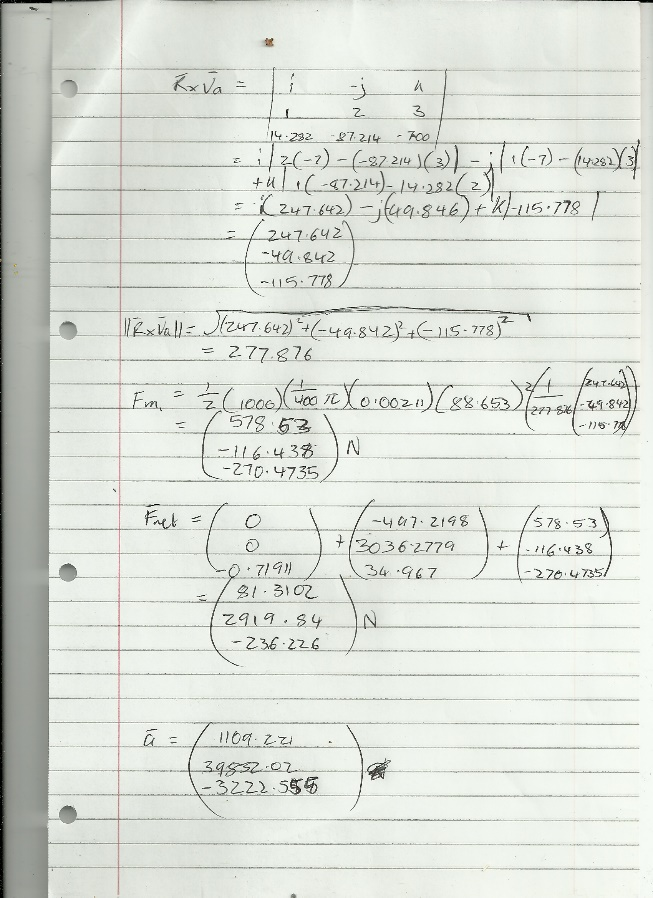 R̄ x V̄a = | i -j k |
| 1 2 3 |
| 14.282 -87.214 -7.00 |
= i | 2(-7) - (-87.214)(3) | - j | 1(-7) - (14.282)(3) |
+ k | 1(-87.214) - 14.282(2) |
= i(247.642) - j(49.846) + k|-115.778|
= ( 247.642
-49.842
-115.778 )
||R̄ x V̄a|| = √(247.642)² + (-49.842)² + (-115.778)²
= 277.876
Fm = 1/2 (1000) (1/400 π) (0.00211) (88.653)² (1/277.876 ( 247.642
-49.842
-115.778 )
= ( 578.53
-116.438
-270.4735 ) N
F̄net = ( 0 ) + ( -497.2198 ) + ( 578.53 )
( 0 ) ( 3036.2779 ) ( -116.438 )
( -0.71911 ) ( 34.967 ) ( -270.4735 )
= ( 81.3102
2919.84
-236.226 ) N
ā = ( 1109.221
39852.02
-3222.555 )